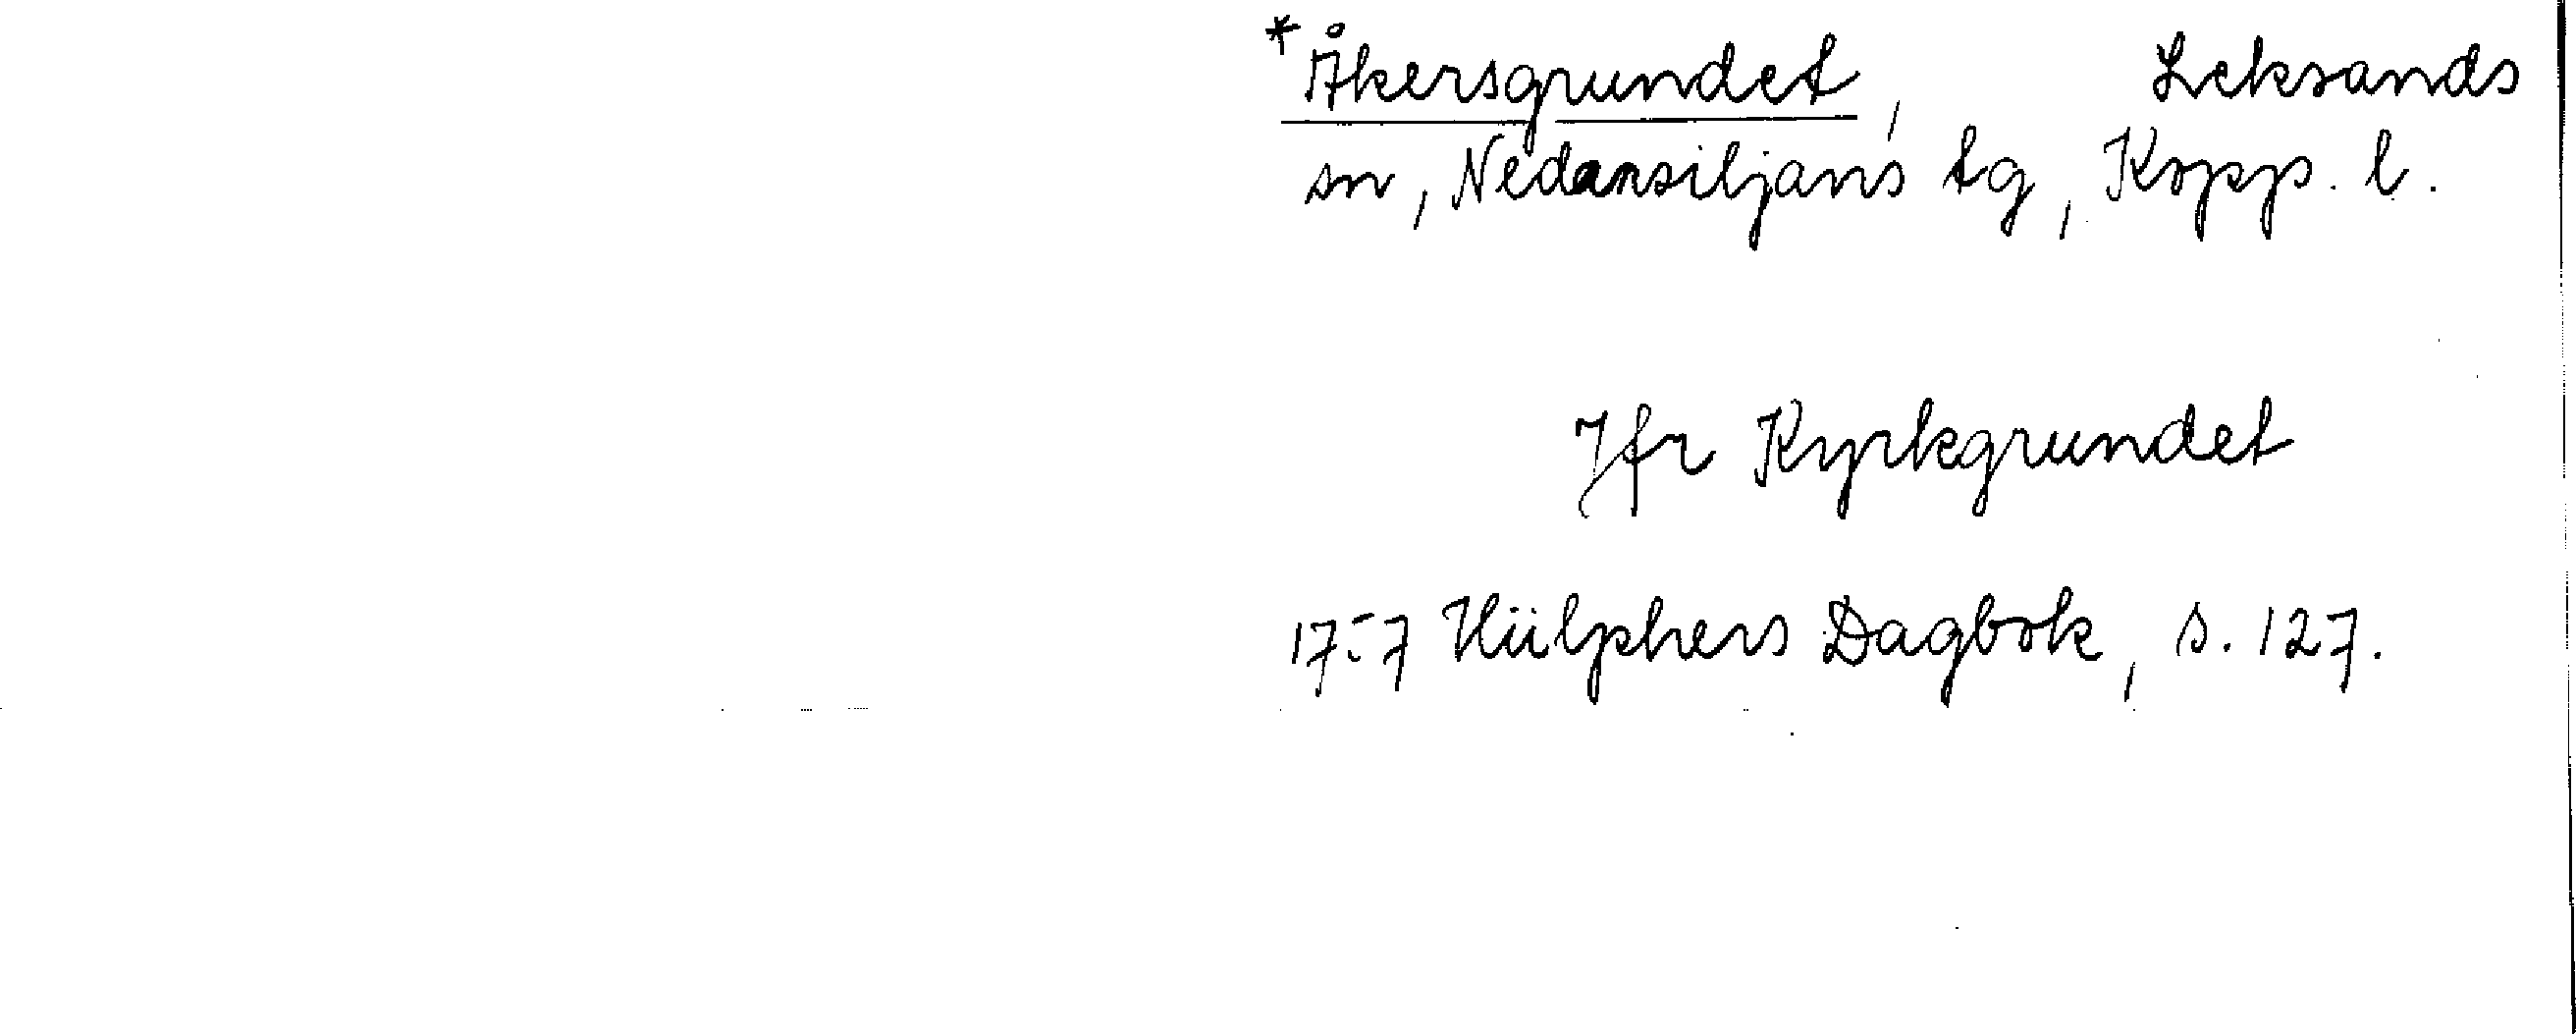 *Åkersgrundet, Leksands
sn, Nedansiljans tg, Kopp. l.
Jfr Kyrkgrundet
1757 Hülphers Dagbok, s. 127.